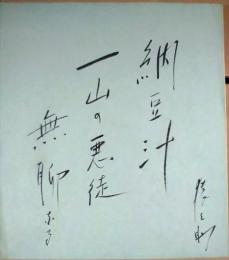 納豆汁
一山の悪徒
無聊なる